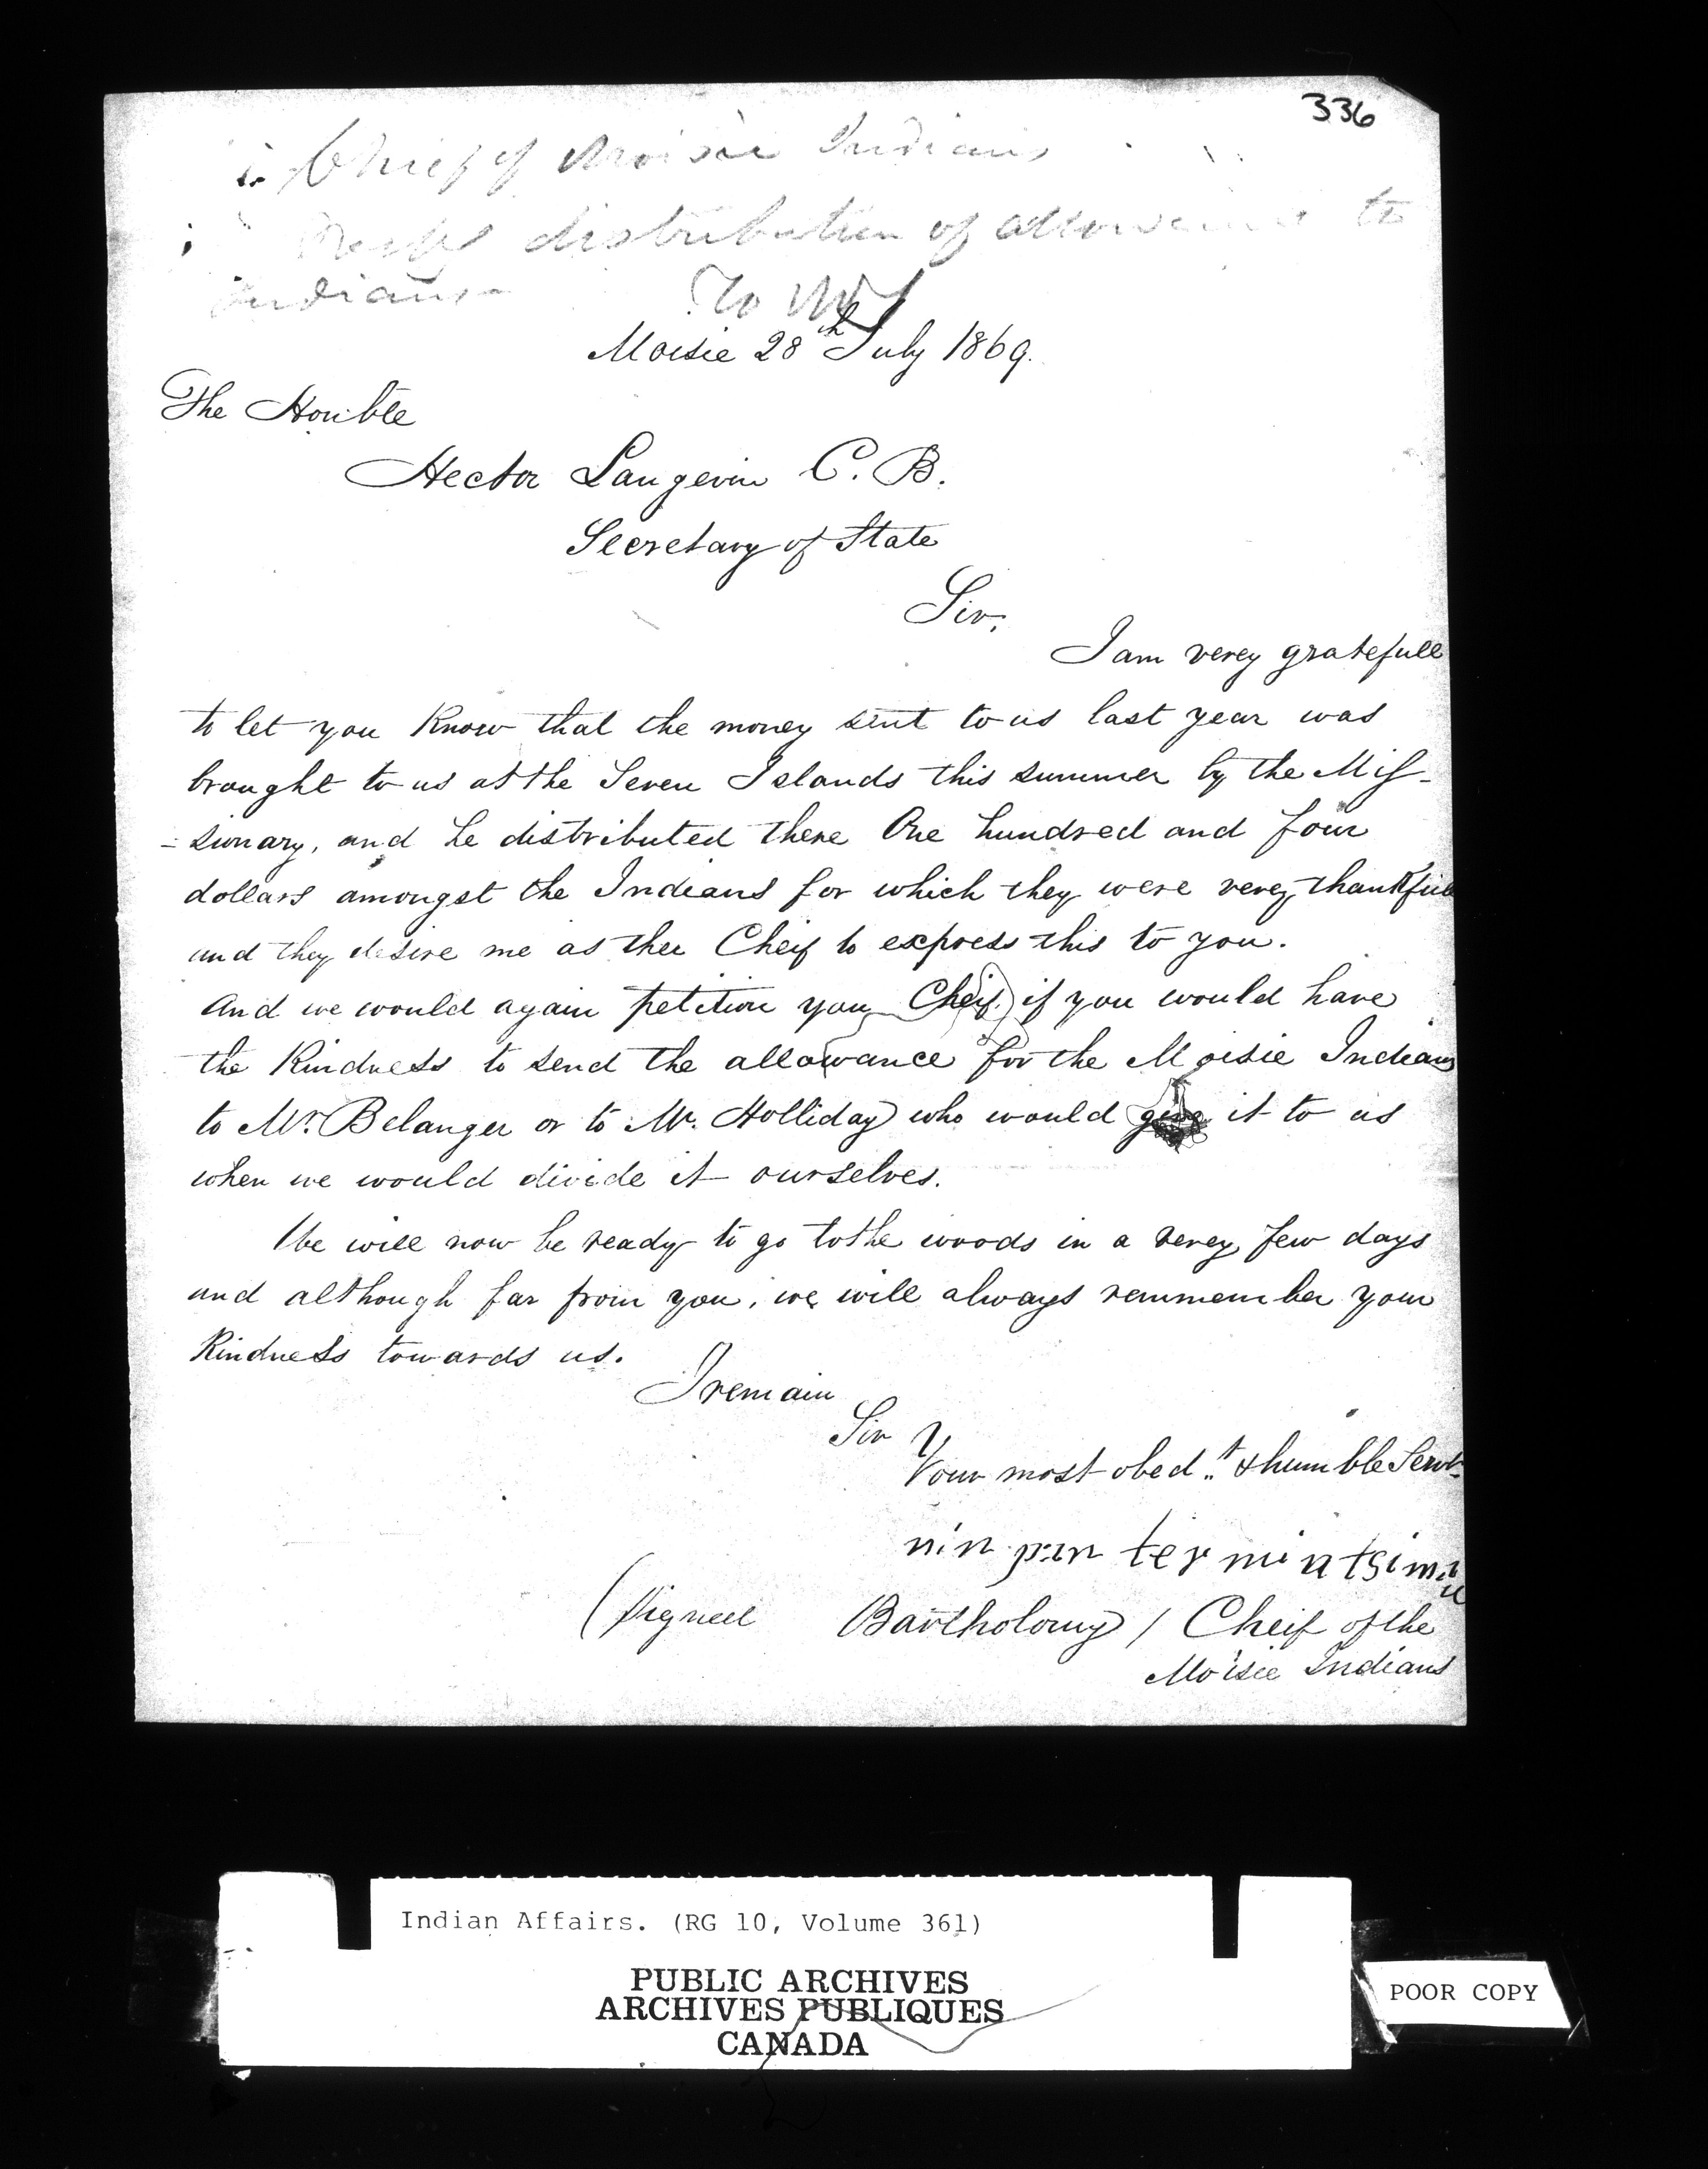 336
Chief of Moisie Indians
distribution of allowance to
Indians
Moisie 28th July 1869.
The Honble
Hector Langevin C. B.
Secretary of State
Sir,
I am verey gratefull
to let you Know that the money sent to us last year was
brought to us at the Seven Islands this summer by the Mis-
=sionary, and he distributed there One hundred and four
dollars amongst the Indians for which they were verey thankfull
and they desire me as ther Cheif to express this to you.
And we would again petition you Cheif if you would have
the Kindness to send the allowance for the Moisie Indians
to Mr. Belanger or to Mr. Holliday who would give it to us
when we would divide it ourselves.
We will now be ready to go to the woods in a verey few days
and although far from you, we will always remmember your
Kindness towards us.
I remain
Sir
Your most obedt. & humble Servt.
nin
(Signed Bartholomy / Cheif of the
Moisie Indians
Indian Affairs. (RG 10, Volume 361)
PUBLIC ARCHIVES
ARCHIVES PUBLIQUES
CANADA
POOR COPY